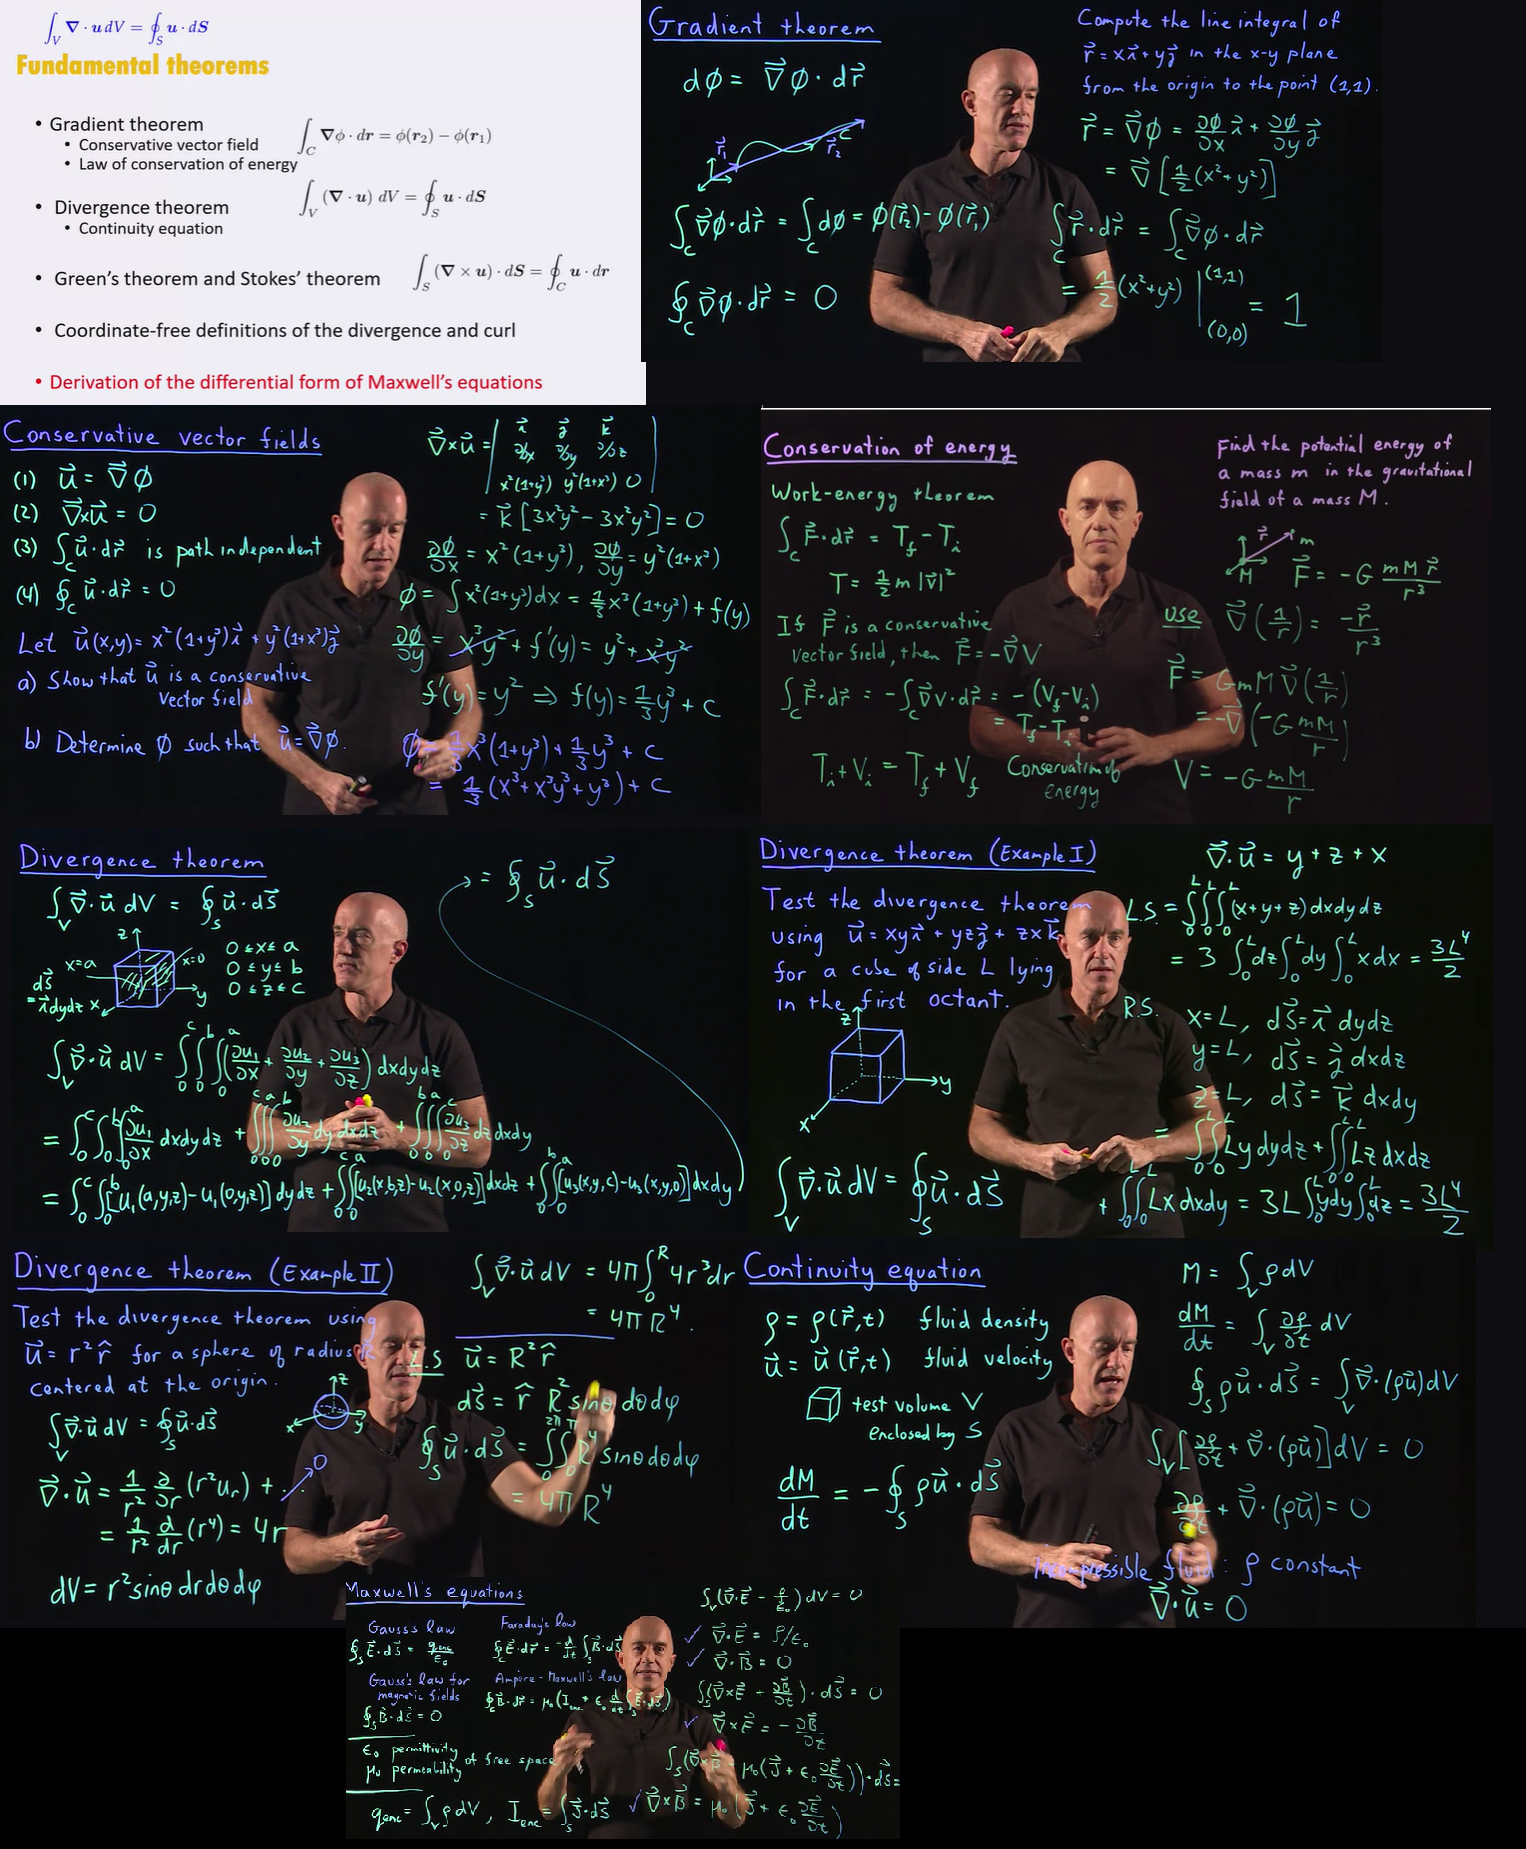 ∫_V ∇ · u dV = ∮_S u · dS
Fundamental theorems
• Gradient theorem
∫_C ∇ϕ · dr = ϕ(r₂) − ϕ(r₁)
• Conservative vector field
• Law of conservation of energy
∫_V (∇ · u) dV = ∮_S u · dS
• Divergence theorem
• Continuity equation
• Green's theorem and Stokes' theorem
∫_S (∇ × u) · dS = ∮_C u · dr
• Coordinate-free definitions of the divergence and curl
• Derivation of the differential form of Maxwell's equations
Gradient theorem
dϕ = ∇⃗ϕ · dr⃗
r⃗₁ r⃗₂ C
∫_C ∇⃗ϕ·dr⃗ = ∫_C dϕ = ϕ(r⃗₂) − ϕ(r⃗₁)
∮_C ∇⃗ϕ·dr⃗ = 0
Compute the line integral of
r⃗ = x i⃗ + y j⃗ in the x-y plane
from the origin to the point (1,1).
r⃗ = ∇⃗ϕ = ∂ϕ/∂x i⃗ + ∂ϕ/∂y j⃗
= ∇⃗[½(x²+y²)]
∫_C r⃗·dr⃗ = ∫_C ∇⃗ϕ·dr⃗
= ½(x²+y²) |_(0,0)^(1,1) = 1
Conservative vector fields
(1) u⃗ = ∇⃗ϕ
(2) ∇⃗×u⃗ = 0
(3) ∫_C u⃗·dr⃗ is path independent
(4) ∮_C u⃗·dr⃗ = 0
Let u⃗(x,y) = x²(1+y³) i⃗ + y²(1+x³) j⃗
a) Show that u⃗ is a conservative
vector field
b) Determine ϕ such that u⃗ = ∇⃗ϕ.
∇⃗×u⃗ = | i⃗ j⃗ k⃗
∂/∂x ∂/∂y ∂/∂z
x²(1+y³) y²(1+x³) 0 |
= k⃗[3x²y² − 3x²y²] = 0
∂ϕ/∂x = x²(1+y³), ∂ϕ/∂y = y²(1+x³)
ϕ = ∫x²(1+y³)dx = ⅓x³(1+y³) + f(y)
∂ϕ/∂y = x³y² + f′(y) = y² + x³y²
f′(y) = y² ⟹ f(y) = ⅓y³ + c
ϕ = ⅓x³(1+y³) + ⅓y³ + c
= ⅓(x³+x³y³+y³) + c
Conservation of energy
Work-energy theorem
∫_C F⃗·dr⃗ = T_f − T_i
T = ½m|v⃗|²
If F⃗ is a conservative
vector field, then F⃗ = −∇⃗V
∫_C F⃗·dr⃗ = −∫_C ∇⃗V·dr⃗ = −(V_f−V_i)
= T_f−T_i
T_i + V_i = T_f + V_f Conservation of
energy
Find the potential energy of
a mass m in the gravitational
field of a mass M.
r⃗ m M
F⃗ = −G mM r⃗/r³
use ∇⃗(1/r) = −r⃗/r³
F⃗ = GmM ∇⃗(1/r)
= −∇⃗(−G mM/r)
V = −G mM/r
Divergence theorem
∫_V ∇⃗·u⃗ dV = ∮_S u⃗·dS⃗
z x=a x=0 y x
dS⃗ = i⃗ dydz
0≤x≤a
0≤y≤b
0≤z≤c
∫_V ∇⃗·u⃗ dV = ∫₀^c ∫₀^b ∫₀^a (∂u₁/∂x + ∂u₂/∂y + ∂u₃/∂z) dxdydz
= ∫₀^c ∫₀^b ∫₀^a ∂u₁/∂x dxdydz + ∫₀^c ∫₀^a ∫₀^b ∂u₂/∂y dy dxdz + ∫₀^b ∫₀^a ∫₀^c ∂u₃/∂z dz dxdy
= ∫₀^c ∫₀^b [u₁(a,y,z)−u₁(0,y,z)] dydz + ∫₀^c ∫₀^a [u₂(x,b,z)−u₂(x,0,z)] dxdz + ∫₀^b ∫₀^a [u₃(x,y,c)−u₃(x,y,0)] dxdy
= ∮_S u⃗·dS⃗
Divergence theorem (Example I)
Test the divergence theorem
using u⃗ = xy i⃗ + yz j⃗ + zx k⃗
for a cube of side L lying
in the first octant.
z y x
∫_V ∇⃗·u⃗ dV = ∮_S u⃗·dS⃗
∇⃗·u⃗ = y + z + x
L.S = ∫₀^L ∫₀^L ∫₀^L (x+y+z) dxdydz
= 3 ∫₀^L dz ∫₀^L dy ∫₀^L x dx = 3L⁴/2
R.S. x=L, dS⃗ = i⃗ dydz
y=L, dS⃗ = j⃗ dxdz
z=L, dS⃗ = k⃗ dxdy
= ∫₀^L ∫₀^L Ly dydz + ∫₀^L ∫₀^L Lz dxdz
+ ∫₀^L ∫₀^L Lx dxdy = 3L ∫₀^L y dy ∫₀^L dz = 3L⁴/2
Divergence theorem (Example II)
Test the divergence theorem using
u⃗ = r² r̂ for a sphere of radius R
centered at the origin.
z y x
∫_V ∇⃗·u⃗ dV = ∮_S u⃗·dS⃗
∇⃗·u⃗ = 1/r² ∂/∂r (r²u_r) + ... 0
= 1/r² d/dr (r⁴) = 4r
dV = r² sinθ dr dθ dφ
∫_V ∇⃗·u⃗ dV = 4π ∫₀^R 4r³ dr
= 4πR⁴.
L.S u⃗ = R² r̂
dS⃗ = r̂ R² sinθ dθ dφ
∮_S u⃗·dS⃗ = ∫₀^2π ∫₀^π R⁴ sinθ dθ dφ
= 4πR⁴
Continuity equation
ρ = ρ(r⃗,t) fluid density
u⃗ = u⃗(r⃗,t) fluid velocity
test volume V
enclosed by S
dM/dt = −∮_S ρu⃗·dS⃗
M = ∫_V ρ dV
dM/dt = ∫_V ∂ρ/∂t dV
∮_S ρu⃗·dS⃗ = ∫_V ∇⃗·(ρu⃗) dV
∫_V [∂ρ/∂t + ∇⃗·(ρu⃗)] dV = 0
∂ρ/∂t + ∇⃗·(ρu⃗) = 0
Incompressible fluid: ρ constant
∇⃗·u⃗ = 0
Maxwell's equations
Gauss's law
∮_S E⃗·dS⃗ = q_enc/ε₀
Faraday's law
∮_C E⃗·dr⃗ = −d/dt ∫_S B⃗·dS⃗
Gauss's law for
magnetic fields
∮_S B⃗·dS⃗ = 0
Ampère-Maxwell's law
∮_C B⃗·dr⃗ = μ₀(I_enc + ε₀ d/dt ∫_S E⃗·dS⃗)
ε₀ permittivity
μ₀ permeability of free space
q_enc = ∫_V ρ dV, I_enc = ∫_S J⃗·dS⃗
∫_V (∇⃗·E⃗ − ρ/ε₀) dV = 0
✓ ∇⃗·E⃗ = ρ/ε₀
✓ ∇⃗·B⃗ = 0
∫_S (∇⃗×E⃗ + ∂B⃗/∂t)·dS⃗ = 0
✓ ∇⃗×E⃗ = −∂B⃗/∂t
∫_S (∇⃗×B⃗ − μ₀(J⃗ + ε₀ ∂E⃗/∂t))·dS⃗ =
✓ ∇⃗×B⃗ = μ₀(J⃗ + ε₀ ∂E⃗/∂t)